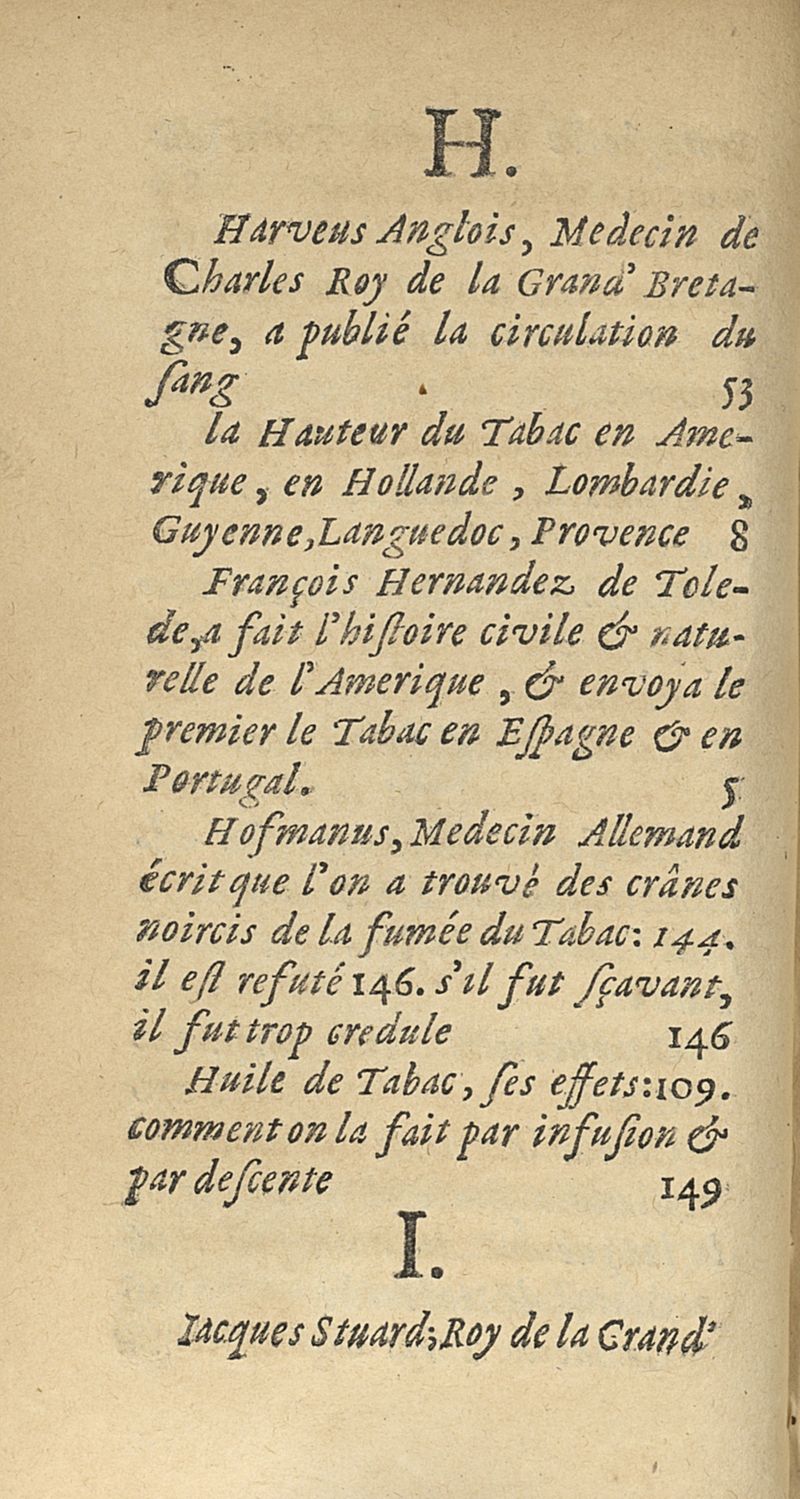 H.
Harveus Anglois, Medecin de
Charles Roy de la Grand' Breta-
gne, a publié la circulation du
ſang 53
la Hauteur du Tabac en Ame-
rique, en Hollande, Lombardie,
Guyenne, Languedoc, Provence 8
François Hernandez de Tole-
de, a fait l'hiſtoire civile & natu-
relle de l'Amerique, & envoya le
premier le Tabac en Eſpagne & en
Portugal. 5
Hofmanus, Medecin Allemand
écrit que l'on a trouvé des crânes
noircis de la fumée du Tabac: 144.
il eſt refuté 146. s'il fut ſçavant,
il fut trop credule 146
Huile de Tabac, ſes effets: 109.
comment on la fait par infuſion &
par deſcente 149
I.
Iacques Stuard; Roy de la Grand'